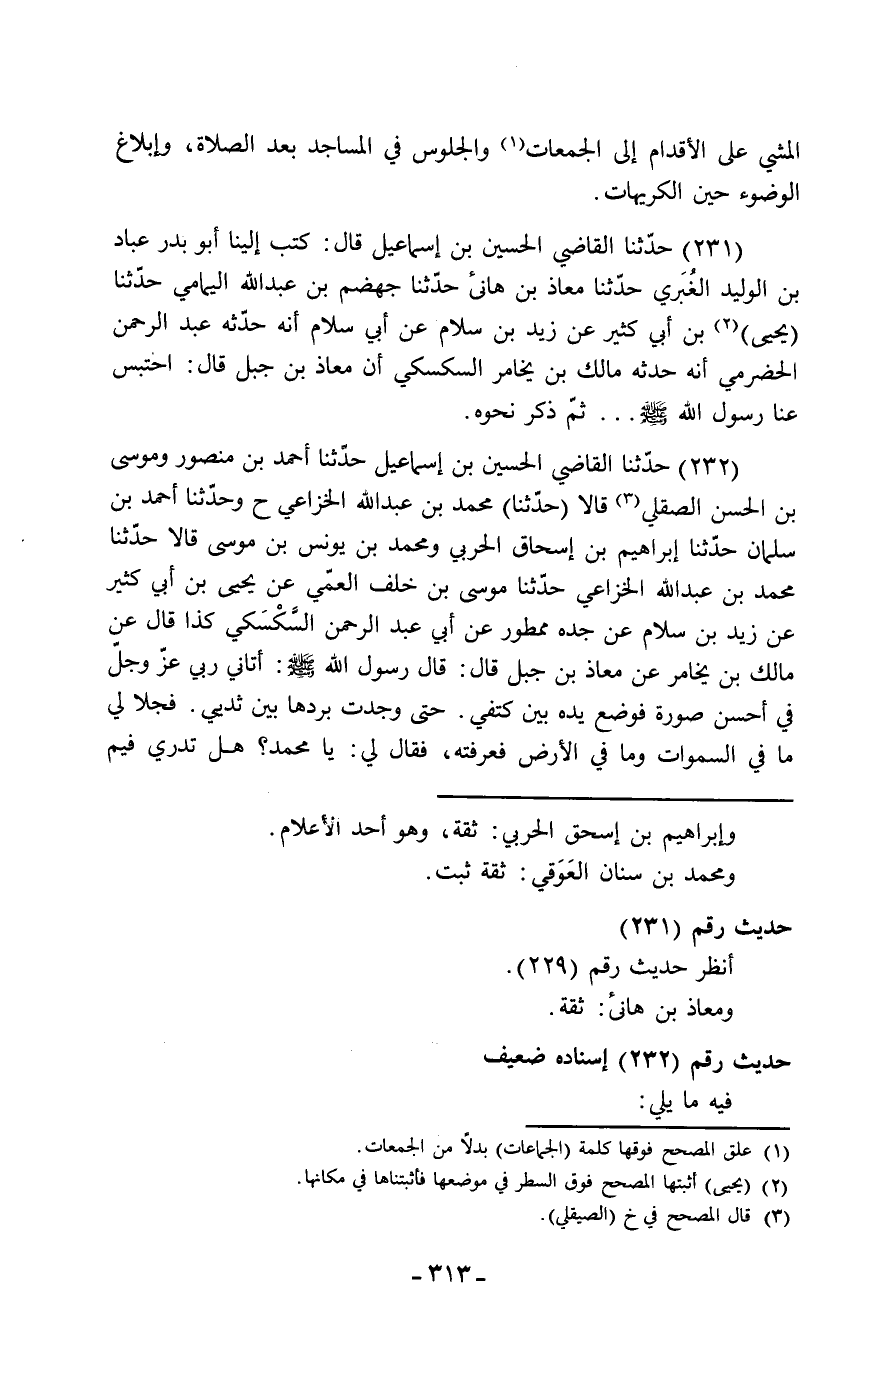 المشي على الأقدام إلى الجمعات(١) والجلوس في المساجد بعد الصلاة، وإبلاغ
الوضوء حين الكريهات.
(٢٣١) حدّثنا القاضي الحسين بن إسماعيل قال: كتب إلينا أبو بدر عباد
بن الوليد الغُبَري حدّثنا معاذ بن هانئ حدّثنا جهضم بن عبدالله اليمامي حدّثنا
(يحيى)(٢) بن أبي كثير عن زيد بن سلام عن أبي سلام أنه حدّثه عبد الرحمن
الحضرمي أنه حدثه مالك بن يخامر السكسكي أن معاذ بن جبل قال: احتبس
عنا رسول الله ﷺ... ثمّ ذكر نحوه.
(٢٣٢) حدّثنا القاضي الحسين بن إسماعيل حدّثنا أحمد بن منصور وموسى
بن الحسن الصقلي(٣) قالا (حدّثنا) محمد بن عبدالله الخزاعي ح وحدّثنا أحمد بن
سلمان حدّثنا إبراهيم بن إسحاق الحربي ومحمد بن يونس بن موسى قالا حدّثنا
محمد بن عبدالله الخزاعي حدّثنا موسى بن خلف العمّي عن يحيى بن أبي كثير
عن زيد بن سلام عن جده ممطور عن أبي عبد الرحمن السَّكْسَكي كذا قال عن
مالك بن يخامر عن معاذ بن جبل قال: قال رسول الله ﷺ: أتاني ربي عزّ وجلّ
في أحسن صورة فوضع يده بين كتفي. حتى وجدت بردها بين ثديي. فجلا لي
ما في السموات وما في الأرض فعرفته، فقال لي: يا محمد؟ هل تدري فيم
وإبراهيم بن إسحق الحربي: ثقة، وهو أحد الأعلام.
ومحمد بن سنان العَوَقي: ثقة ثبت.
حديث رقم (٢٣١)
أنظر حديث رقم (٢٢٩).
ومعاذ بن هانئ: ثقة.
حديث رقم (٢٣٢) إسناده ضعيف
فيه ما يلي:
(١) علق المصحح فوقها كلمة (الجماعات) بدلاً من الجمعات.
(٢) (يحيى) أثبتها المصحح فوق السطر في موضعها فأثبتناها في مكانها.
(٣) قال المصحح في خ (الصيقلي).
- ٣١٣ -